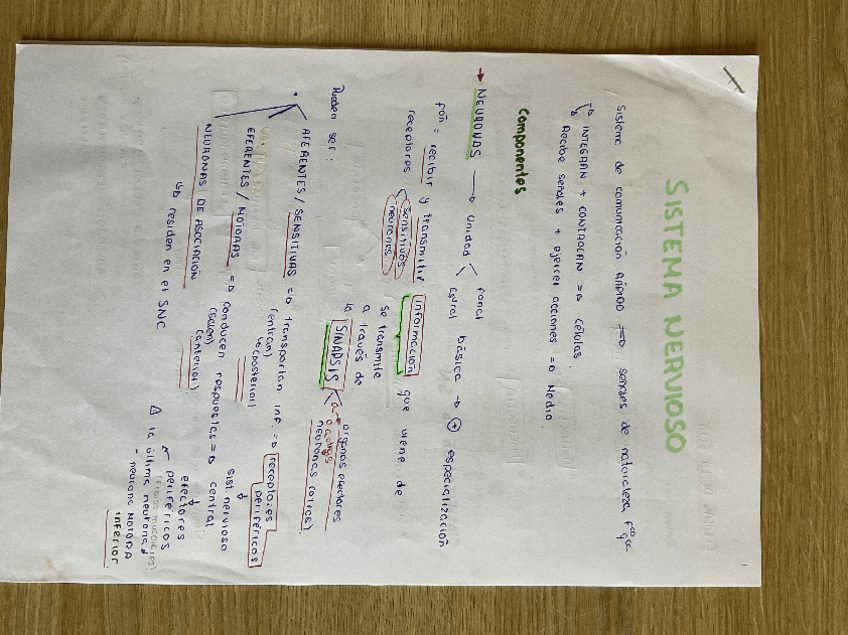 SISTEMA NERVIOSO
Sistema de comunicación rápido => señales de naturaleza fcoqca
INTEGRAN + CONTROLAN => células.
Recibe señales + ejercer acciones => Medio
Componentes
→ NEURONAS → Unidad funcal básica → + especialización
esrral
fón = recibir y transmitir información que viene de
receptores sensitivos
neuronas
se transmite
a través de
SINAPSIS
órganos efectores
o a otras
neuronas
Pueden ser:
AFERENTES / SENSITIVAS => transportan inf. => receptores
(entran) periféricos
(posterior)
sist. nervioso
central
EFERENTES / MOTORAS => conducen respuestas =>
(salen) efectores
(anterior) periféricos
NEURONAS DE ASOCIACIÓN
residen en el SNC
la última neurona
= neurona MOTORA
inferior